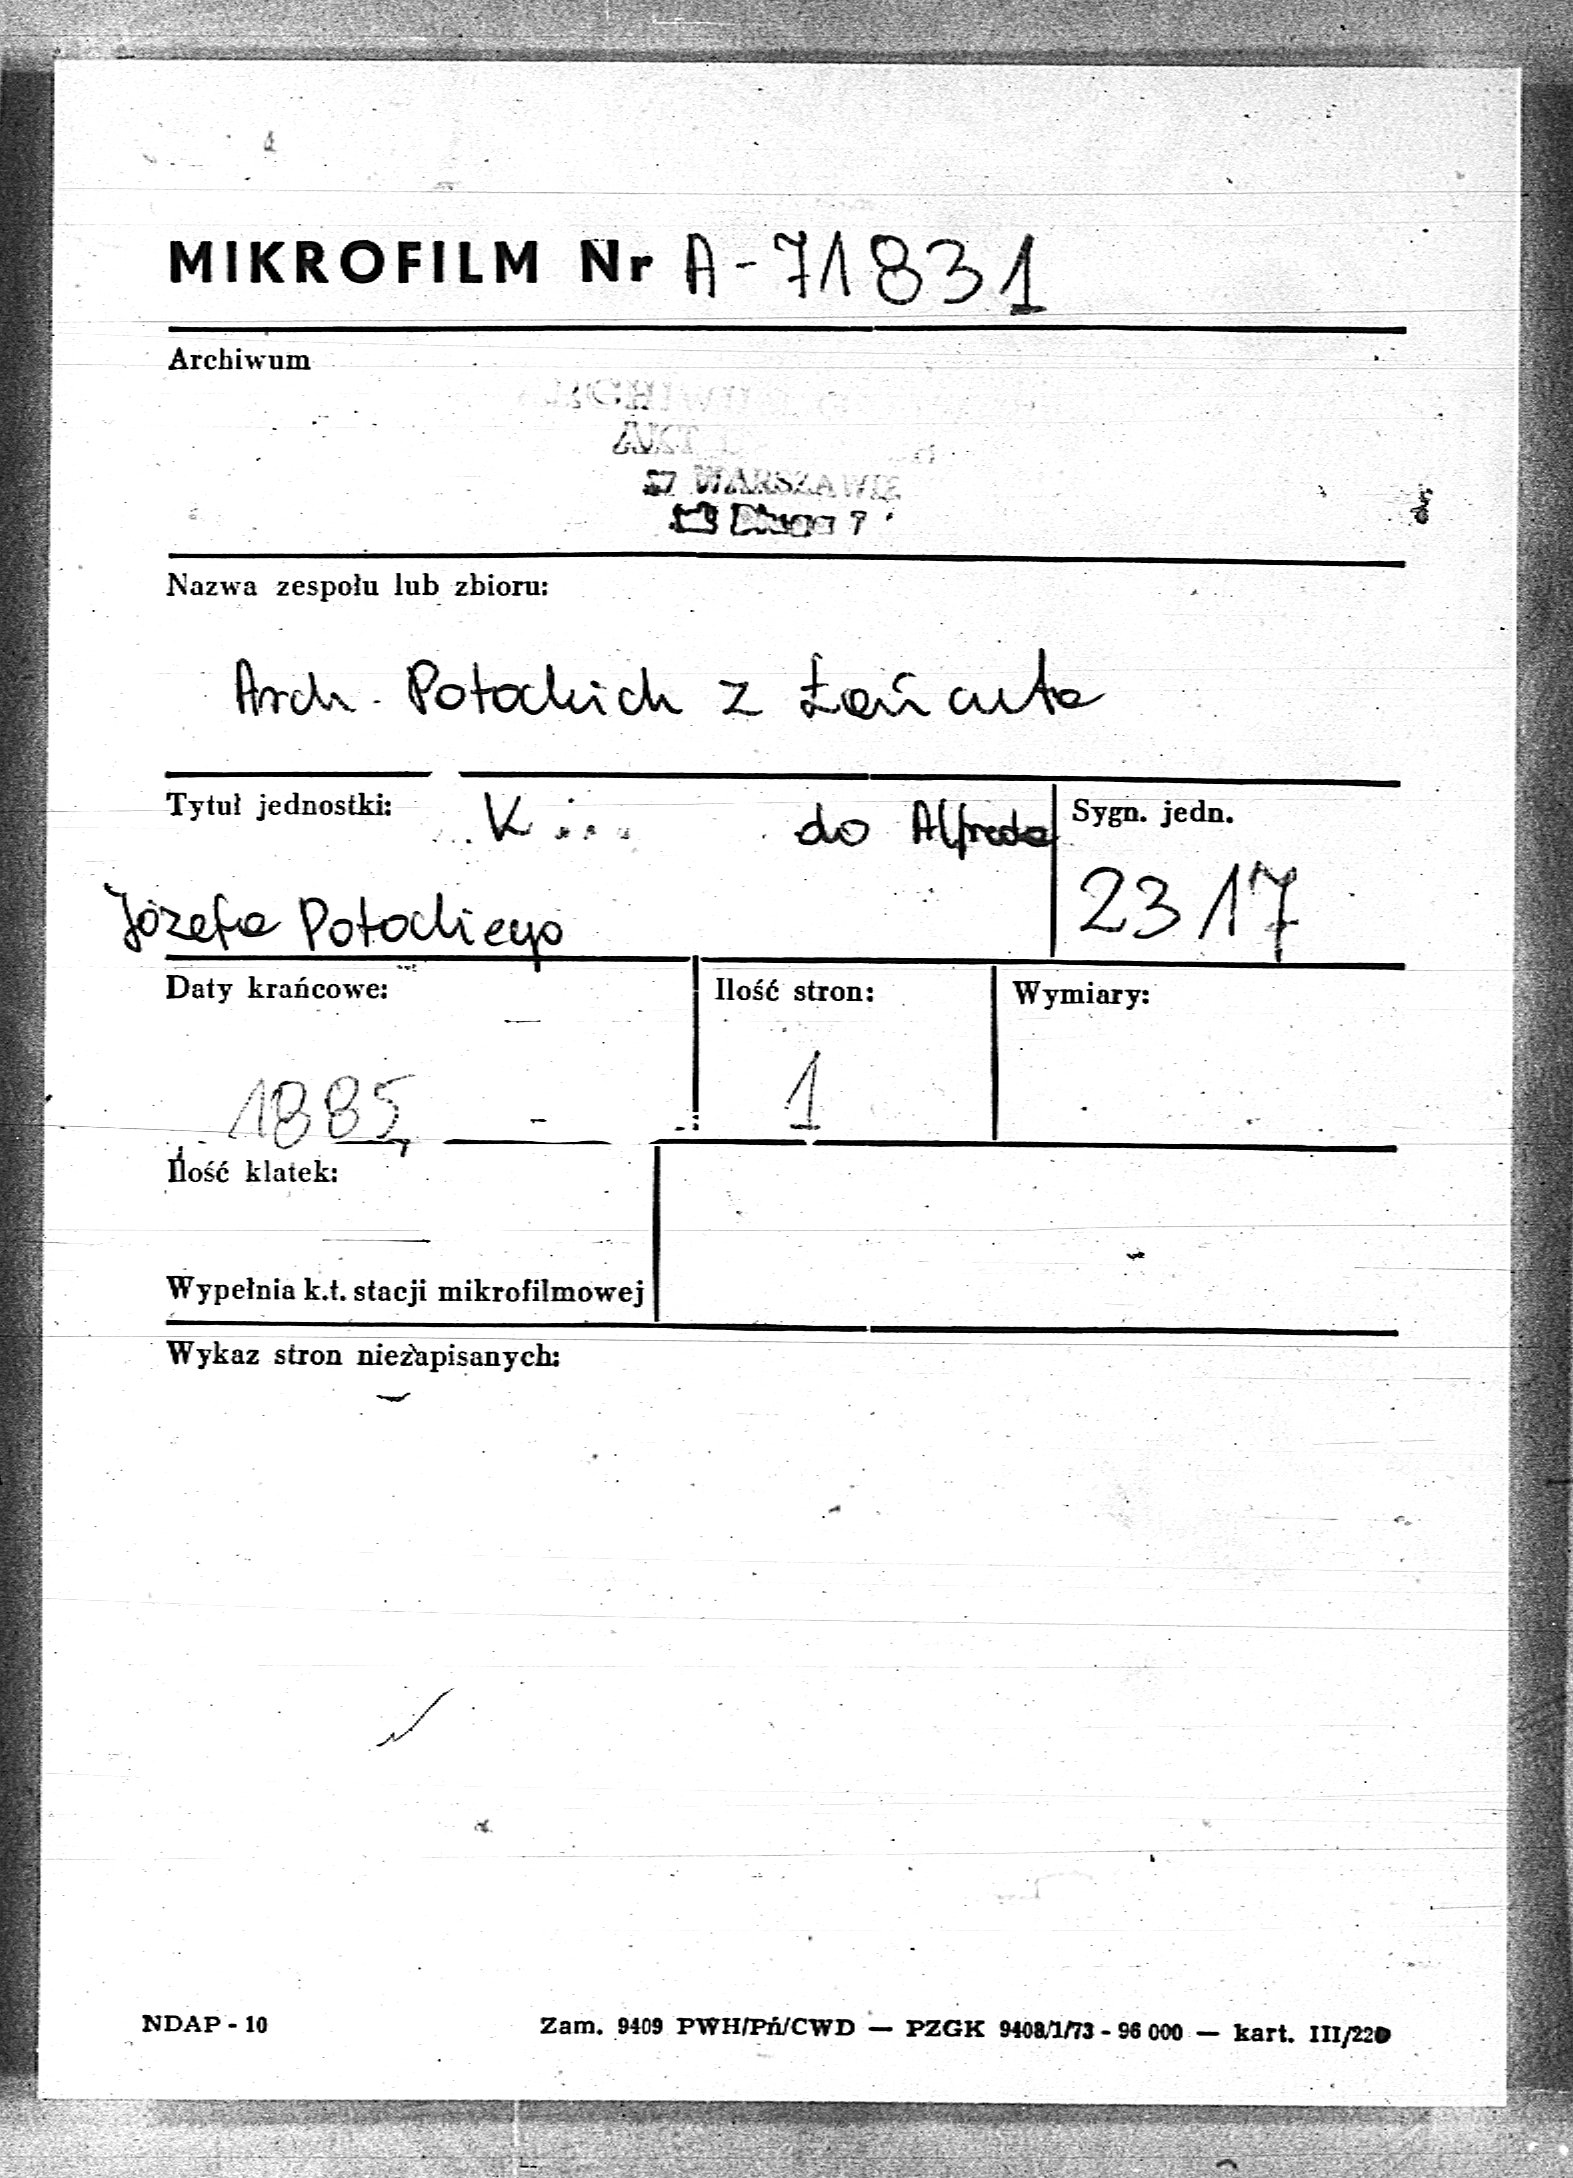 MIKROFILM Nr A-71831
Archiwum
ARCHIWUM
AKT
W WARSZAWIE
Długa 7
Nazwa zespołu lub zbioru:
Arch. Potockich z Łańcuta
Tytuł jednostki: K... do Alfreda
Józefa Potockiego
Sygn. jedn.
2317
Daty krańcowe:
1885
Ilość stron:
1
Wymiary:
Ilość klatek:
Wypełnia k.t. stacji mikrofilmowej
Wykaz stron niezapisanych:
NDAP - 10
Zam. 9409 PWH/Pń/CWD — PZGK 9408/1/73 - 96 000 — kart. III/220